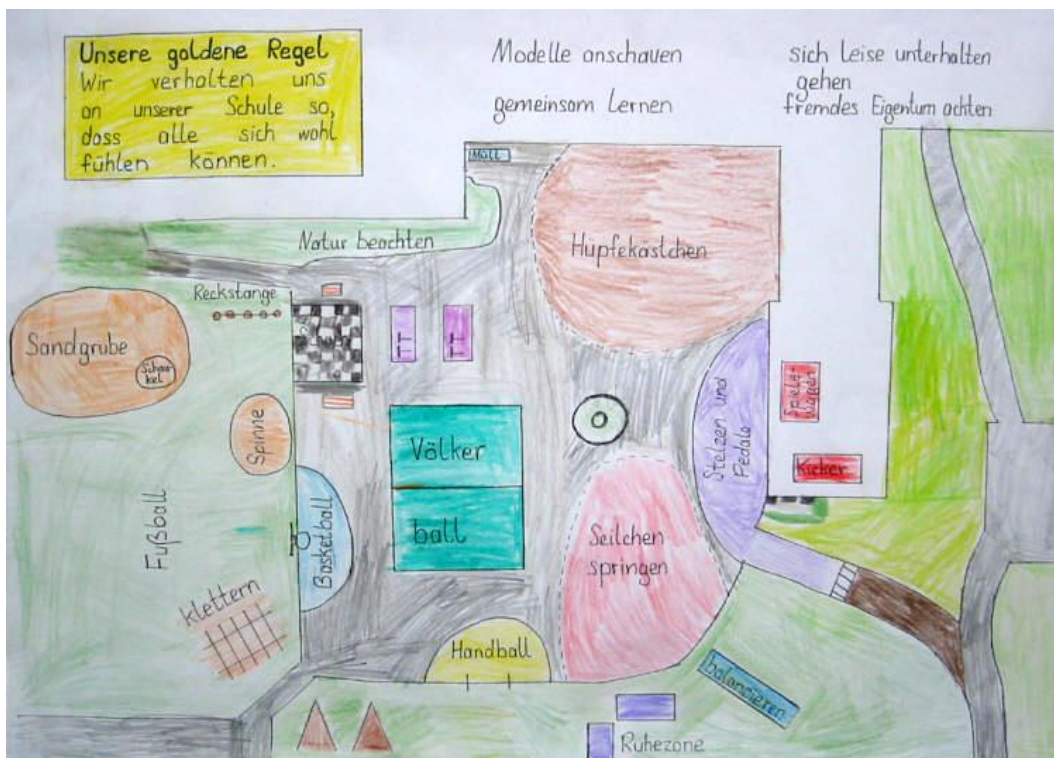 Unsere goldene Regel
Wir verhalten uns
an unserer Schule so,
dass alle sich wohl
fühlen können.
Modelle anschauen
gemeinsam Lernen
sich Leise unterhalten
gehen
fremdes Eigentum achten
Müll
Natur beachten
Hüpfekästchen
Reckstange
Sandgrube
Schau-
kel
TT
TT
Spinne
Völker
ball
Stelzen und
Pedalo
Spiele-
wagen
Kicker
Fußball
Basketball
Seilchen
springen
klettern
Handball
balancieren
Ruhezone